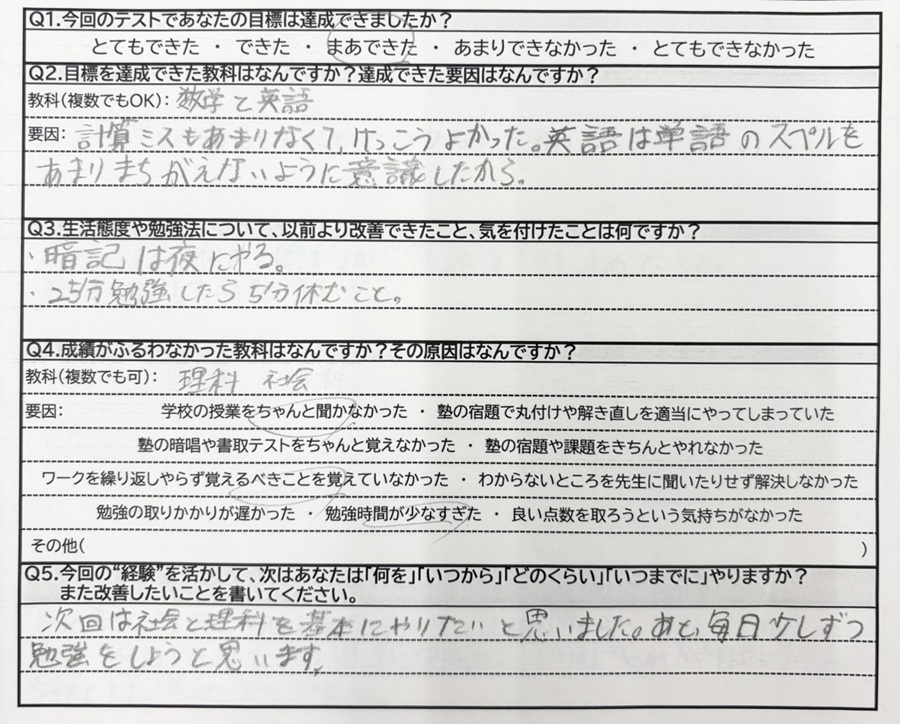 Q1.今回のテストであなたの目標は達成できましたか？
とてもできた ・ できた ・ まあできた ・ あまりできなかった ・ とてもできなかった
Q2.目標を達成できた教科はなんですか？達成できた要因はなんですか？
教科(複数でもOK)： 数学と英語
要因： 計算ミスもあまりなくて,けっこうよかった。英語は単語のスペルを
あまりまちがえないように意識したから。
Q3.生活態度や勉強法について、以前より改善できたこと、気を付けたことは何ですか？
・暗記は夜にやる。
・25分勉強したら5分休むこと。
Q4.成績がふるわなかった教科はなんですか？その原因はなんですか？
教科(複数でも可)： 理科 社会
要因： 学校の授業をちゃんと聞かなかった ・ 塾の宿題で丸付けや解き直しを適当にやってしまっていた
塾の暗唱や書取テストをちゃんと覚えなかった ・ 塾の宿題や課題をきちんとやれなかった
ワークを繰り返しやらず覚えるべきことを覚えていなかった ・ わからないところを先生に聞いたりせず解決しなかった
勉強の取りかかりが遅かった ・ 勉強時間が少なすぎた ・ 良い点数を取ろうという気持ちがなかった
その他( )
Q5.今回の“経験”を活かして、次はあなたは｢何を｣｢いつから｣｢どのくらい｣｢いつまでに｣やりますか？
また改善したいことを書いてください。
次回は社会と理科を基本にやりたいと思いました。あと、毎日少しずつ
勉強をしようと思います。